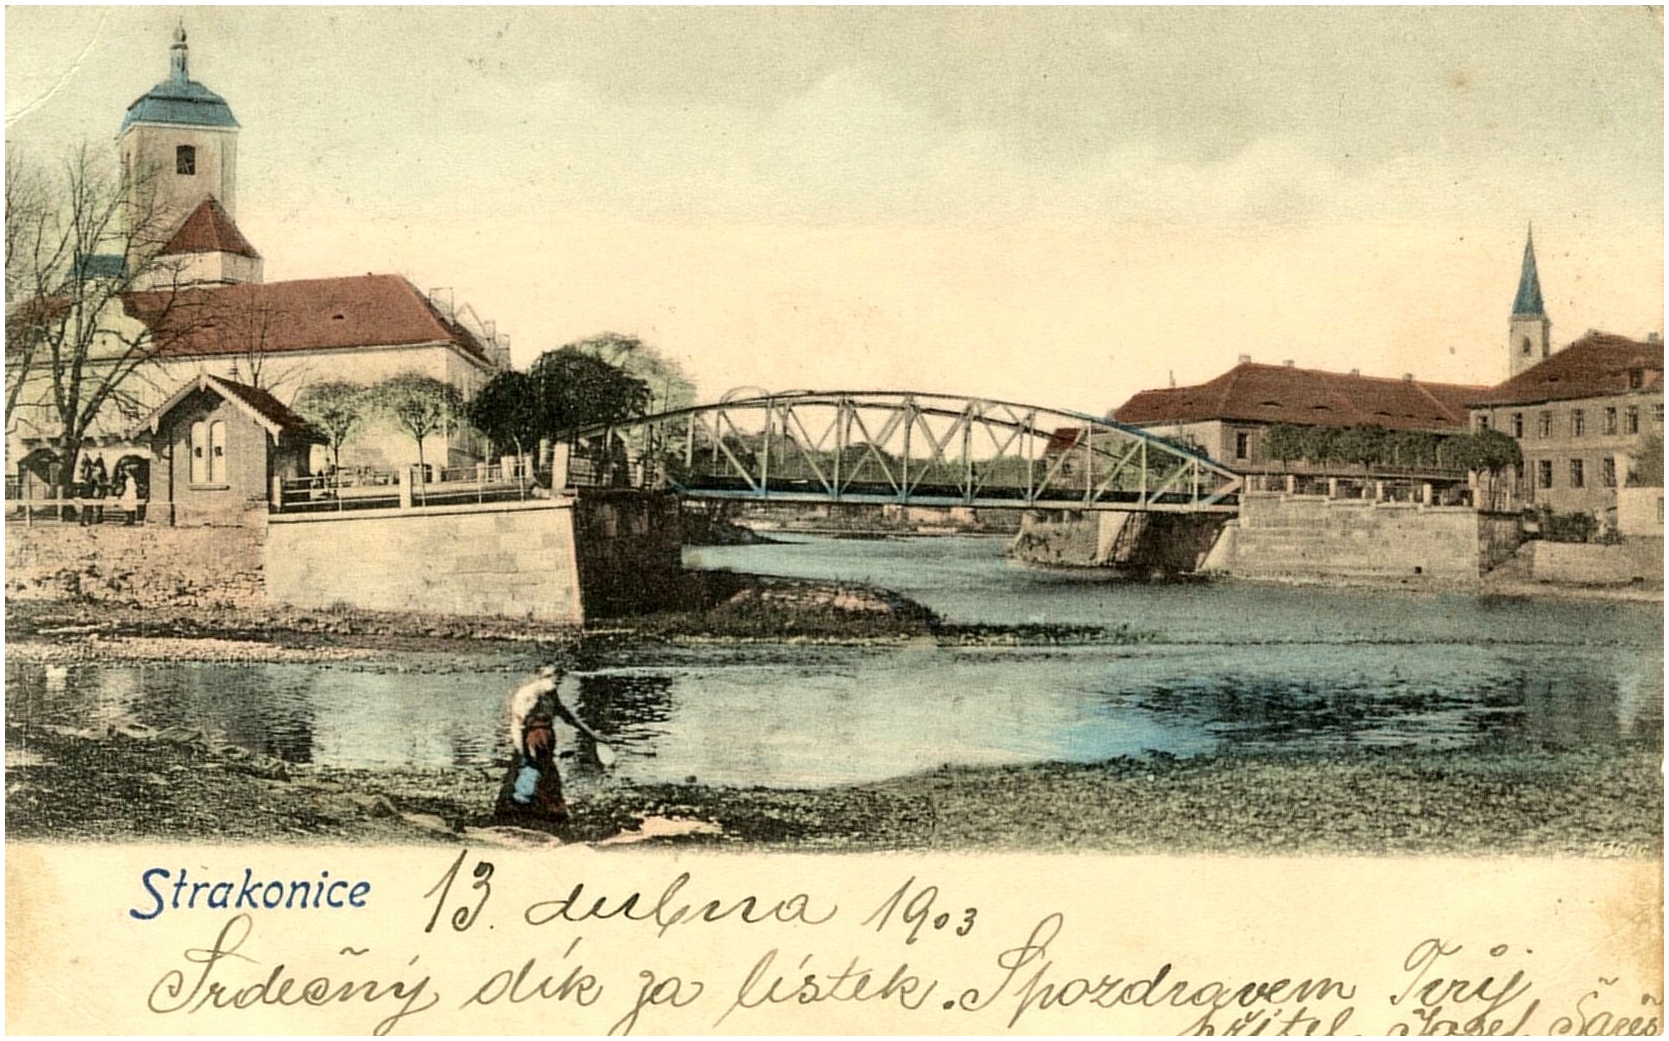 Strakonice 13. dubna 1903
Srdečný dík za lístek. S pozdravem Tvůj
přítel Josef